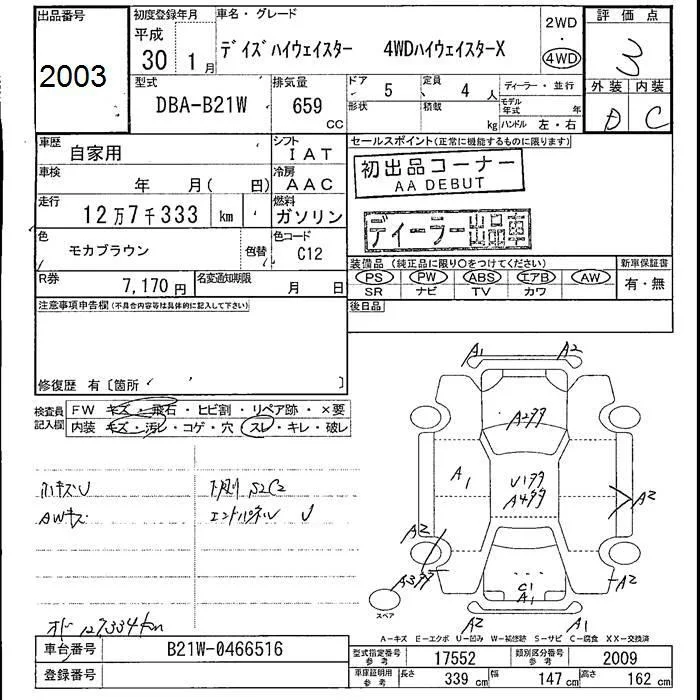 出品番号
2003
初度登録年月
平成
30 1月
車名・グレード
デイズハイウェイスター 4WDハイウェイスターX
2WD
・
4WD
評価点
3
外装 内装
D C
型式
DBA-B21W
排気量
659
CC
ドア
5
定員
4 人
形状
積載
kg
ディーラー・並行
モデル年式 年
ハンドル 左・右
車歴
自家用
シフト
IAT
車検
年 月( 日)
冷房
AAC
走行
12万7千333 km
燃料
ガソリン
色
モカブラウン
色替
色コード
C12
R券
7,170円
名変通知期限
月 日
セールスポイント(正常に機能するものに限ります)
初出品コーナー
AA DEBUT
ディーラー出品車
装備品(純正品に限り〇をつけてください)
PS PW ABS エアB AW
SR ナビ TV カワ
新車保証書
有・無
後日品
注意事項申告欄(不具合内容等は具体的に記入して下さい)
修復歴 有〔箇所 〕
検査員記入欄
FW キズ・飛石・ヒビ割・リペア跡・×要
内装 キズ・汚レ・コゲ・穴・スレ・キレ・破レ
小キズU
AWキズ
下廻り S2C2
エンドパネルU U
オド 127334km
A1 A2
A2
A1
U1
A4
A2
A2
A3
C1
A1
A2
A2 A1
スペア
A-キズ E-エクボ U-凹み W-補修跡 S-サビ C-腐食 XX-交換済
車台番号
B21W-0466516
登録番号
型式指定番号 参考
17552
類別区分番号 参考
2009
車庫証明用 参考
長さ 339 cm
幅 147 cm
高さ 162 cm